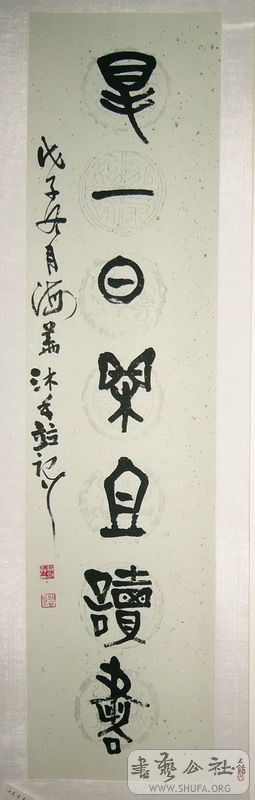 得一日閑且讀書
戊子冬月海
沐手
記
書藝公社
WWW.SHUFA.ORG